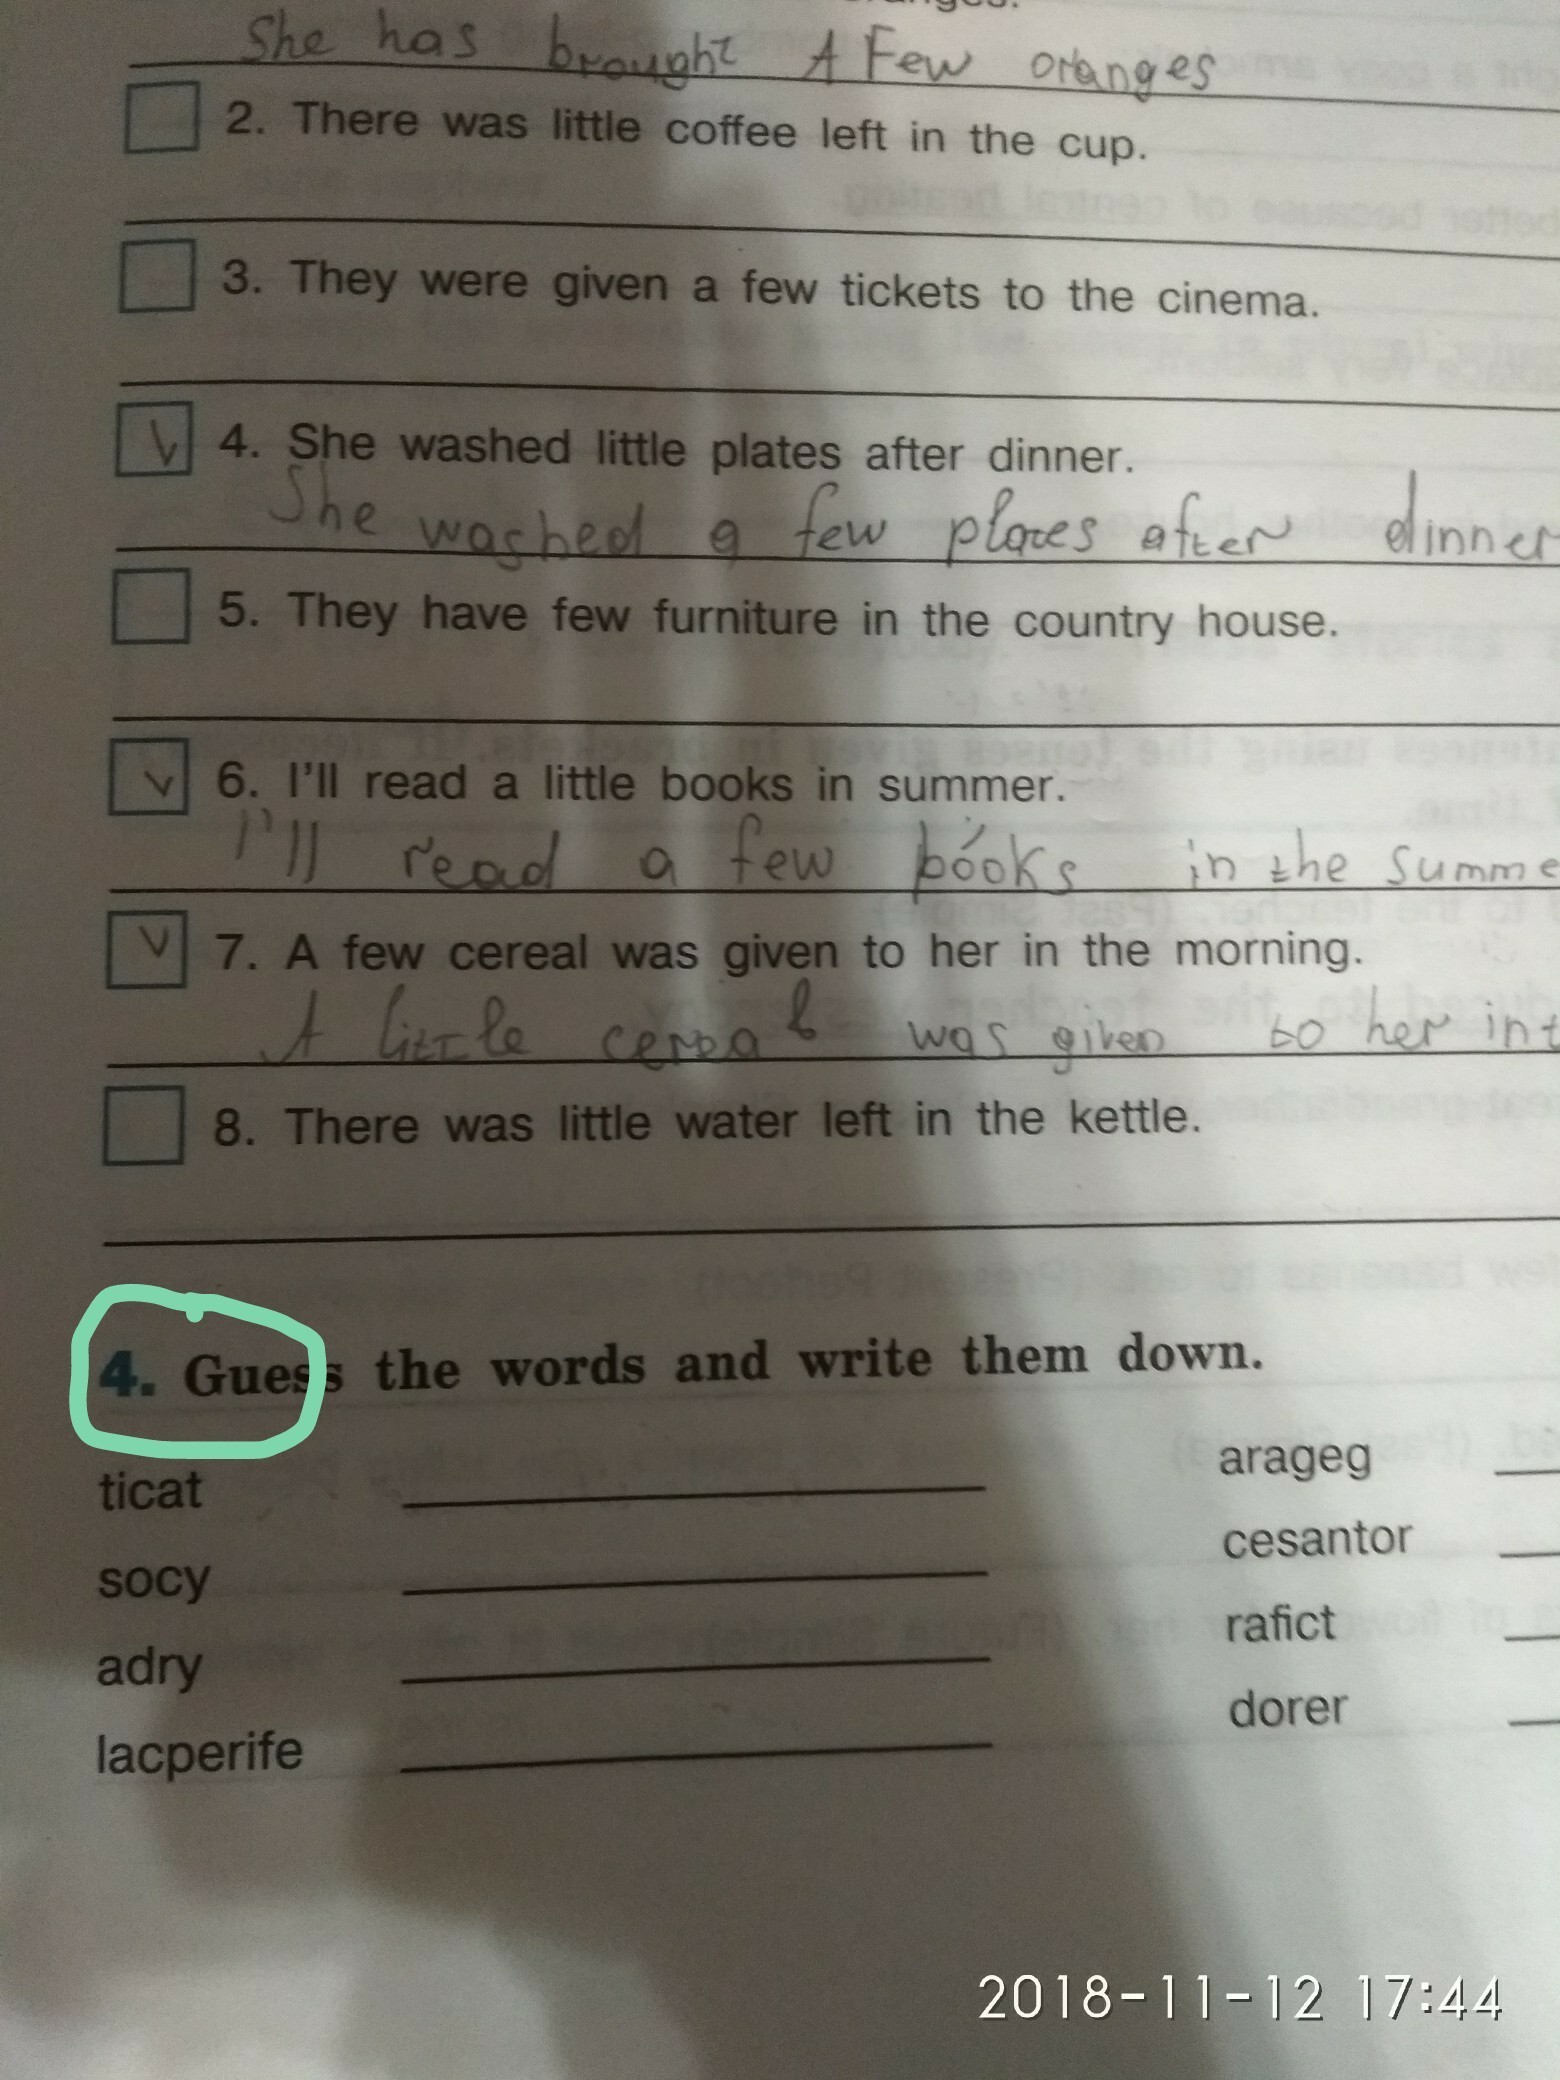 She has brought A Few oranges
2. There was little coffee left in the cup.
3. They were given a few tickets to the cinema.
4. She washed little plates after dinner.
She washed a few plates after dinner
5. They have few furniture in the country house.
6. I'll read a little books in summer.
I'll read a few books in the summe
7. A few cereal was given to her in the morning.
A little cereal was given to her in t
8. There was little water left in the kettle.
4. Guess the words and write them down.
ticat arageg
socy cesantor
adry rafict
lacperife dorer
2018-11-12 17:44